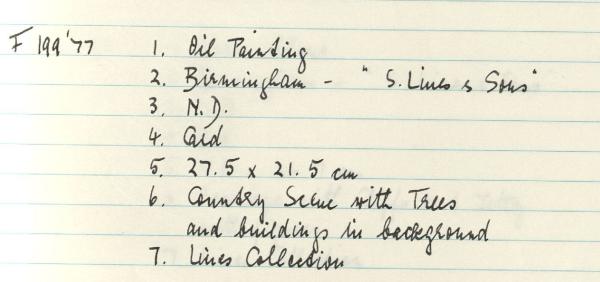 F 199'77 1. Oil Painting
2. Birmingham - "S. Lines & Sons"
3. N.D.
4. Card
5. 27.5 x 21.5 cm
6. Country Scene with Trees
and buildings in background
7. Lines Collection